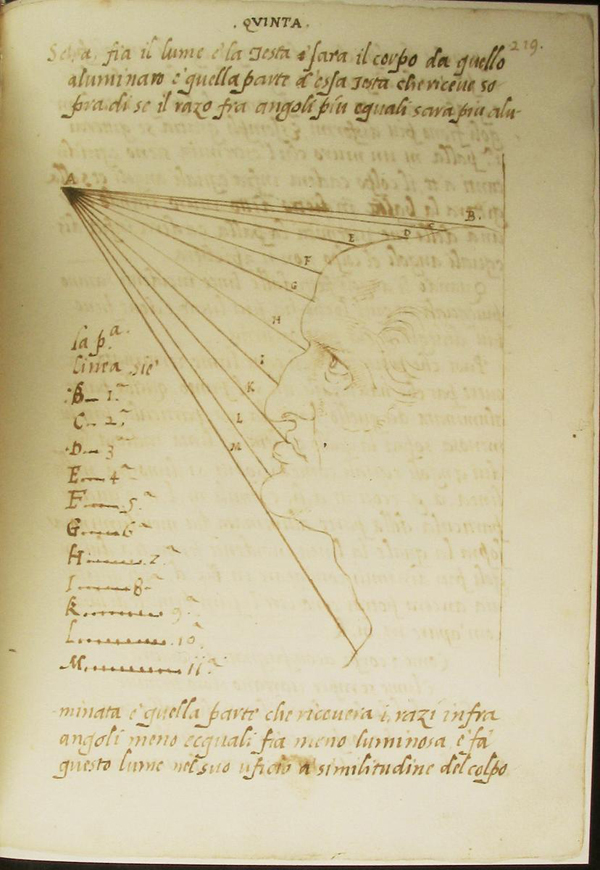 .QVINTA.
219.
fia il lume e la Testa e sara il corpo da quello
aluminato e quella parte d'essa Testa che riceve so
pra di se il razo fra angoli piu equali sara piu alu-
A
B.
C
D
E
F
G
H
I
K
L
M
la p.ª
linea sie
B 1ª
C 2ª
D 3
E 4ª
F 5ª
G 6ª
H 7ª
I 8ª
K 9ª
L 10ª
M 11ª
minata e quella parte che ricevera i razi infra
angoli meno ecquali fia meno luminosa e fa
questo lume nel suo uficio a similitudine del colpo